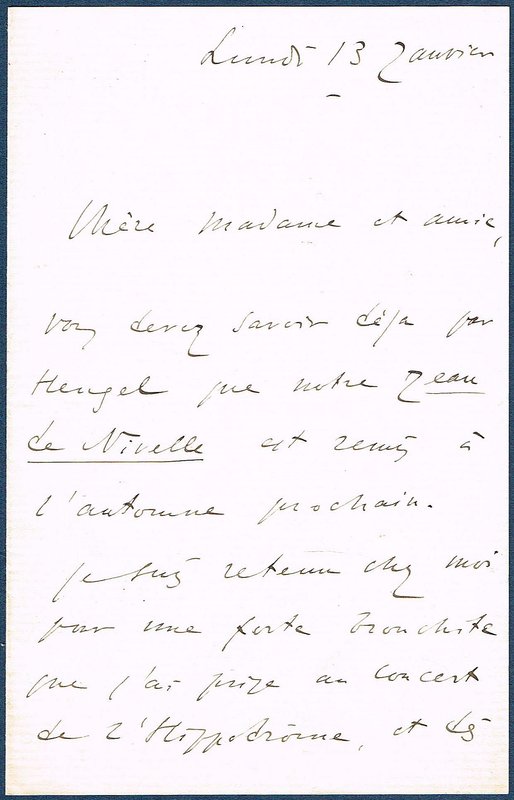 Lundi 13 Janvier
Chère Madame et amie,
vous devez savoir déja par
Heugel que notre Jean
de Nivelle est remis à
l'automne prochain.
Je suis retenu chez moi
pour une forte bronchite
que j'ai prise au concert
de l'Hippodrôme, et dès